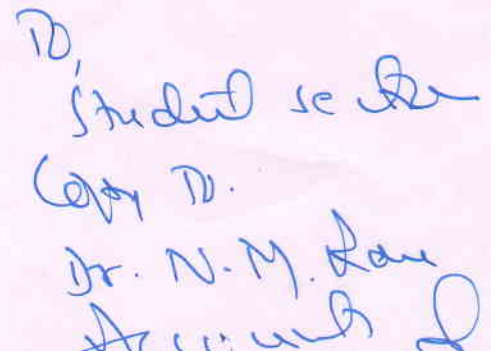 To,
Student section
Copy to.
Dr. N. M. Rau
Accounts